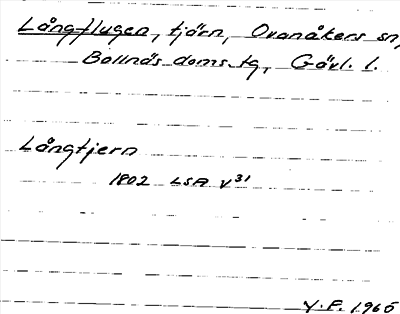 Långflugen, tjärn, Ovanåkers sn,
Bollnäs doms.tg, Gävl. l.
Långtjern
1802 LSA V31
Y.F. 1965